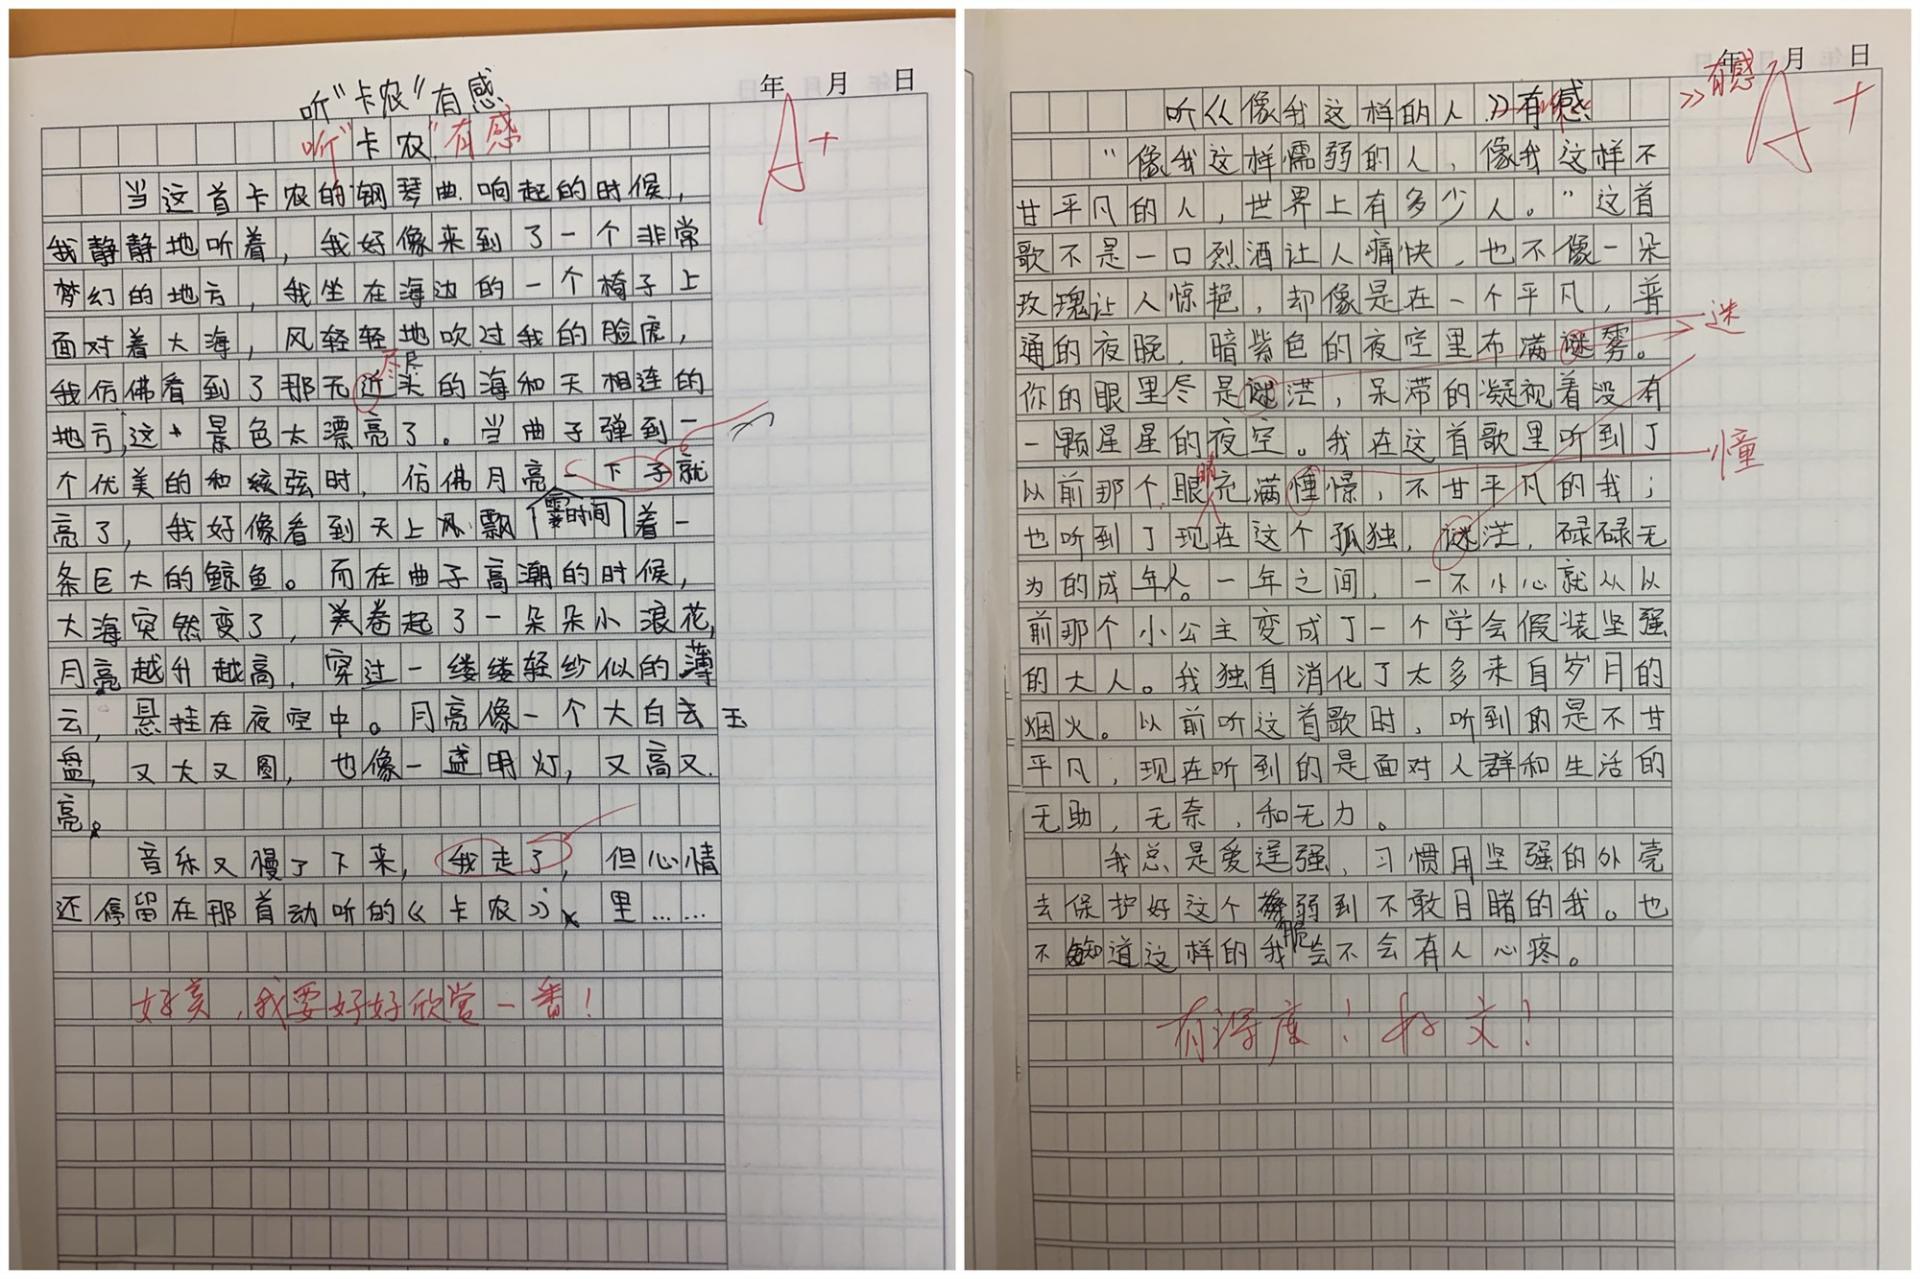 年 月 日
听“卡农”有感
听“卡农”有感
A+
当这首卡农的钢琴曲响起的时候，
我静静地听着，我好像来到了一个非常
梦幻的地方，我坐在海边的一个椅子上
面对着大海，风轻轻地吹过我的脸庞，
尽
我仿佛看到了那无近头的海和天相连的
地方，这个景色太漂亮了。当曲子弹到一
个优美的和弦时，仿佛月亮一下子就
霎时间
亮了，我好像看到天上飘着一
条巨大的鲸鱼。而在曲子高潮的时候，
大海突然变了，卷起了一朵朵小浪花，
月亮越升越高，穿过一缕缕轻纱似的薄
云，悬挂在夜空中。月亮像一个大白玉
盘，又大又圆，也像一盏明灯，又高又
亮。
音乐又慢了下来，我走了，但心情
还停留在那首动听的《卡农》里……
好美，我要好好欣赏一番！
年 月 日
听《像我这样的人》有感
》有感
A+
“像我这样懦弱的人，像我这样不
甘平凡的人，世界上有多少人。”这首
歌不是一口烈酒让人痛快，也不像一朵
玫瑰让人惊艳，却像是在一个平凡，普
通的夜晚，暗紫色的夜空里布满谜雾。
迷
你的眼里尽是谜茫，呆滞的凝视着没有
一颗星星的夜空。我在这首歌里听到了
憧
睛
以前那个眼充满憧憬，不甘平凡的我；
也听到了现在这个孤独，谜茫，碌碌无
为的成年人。一年之间，一不小心就从以
前那个小公主变成了一个学会假装坚强
的大人。我独自消化了太多来自岁月的
烟火。以前听这首歌时，听到的是不甘
平凡，现在听到的是面对人群和生活的
无助，无奈，和无力。
我总是爱逞强，习惯用坚强的外壳
去保护好这个弱到不敢目睹的我。也
脆
不知道这样的我会不会有人心疼。
有深度！好文！